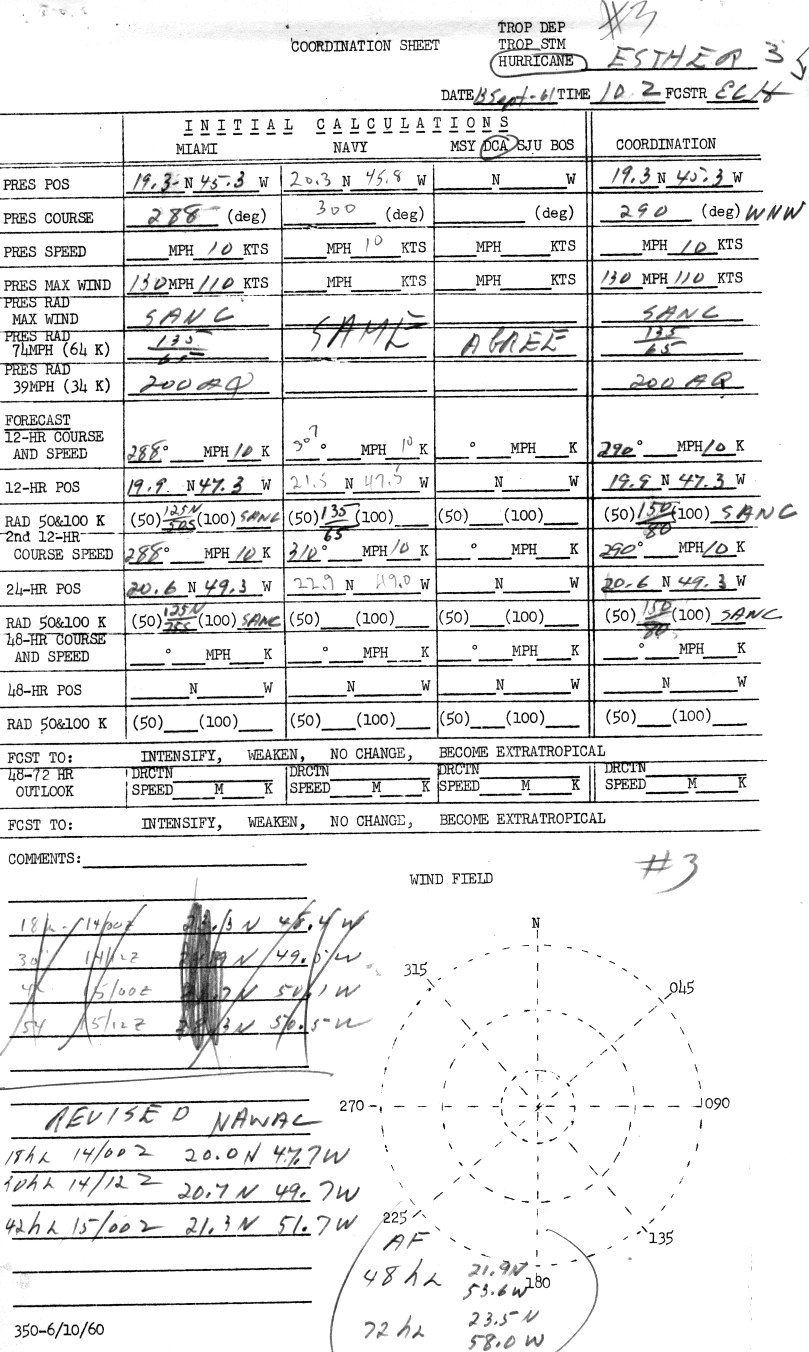 #3
TROP DEP
COORDINATION SHEET TROP STM
HURRICANE ESTHER 3
DATE 13 Sept-61 TIME 10 Z FCSTR
INITIAL CALCULATIONS
MIAMI NAVY MSY DCA SJU BOS COORDINATION
PRES POS 19.3 N 45.3 W 20.3 N 45.8 W N W 19.3 N 45.3 W
PRES COURSE 288 (deg) 300 (deg) (deg) 290 (deg) WNW
PRES SPEED MPH 10 KTS MPH 10 KTS MPH KTS MPH 10 KTS
PRES MAX WIND 130 MPH 110 KTS MPH KTS MPH KTS 130 MPH 110 KTS
PRES RAD
MAX WIND SANC SAME SANC
PRES RAD 135 AGREE 135
74MPH (64 K) 65 65
PRES RAD
39MPH (34 K) 200 AQ 200 AQ
FORECAST
12-HR COURSE
AND SPEED 288° MPH 10 K 307° MPH 10 K ° MPH K 290° MPH 10 K
12-HR POS 19.9 N 47.3 W 21.5 N 47.5 W N W 19.9 N 47.3 W
RAD 50&100 K (50) 125N (100) SANC (50) 135/65 (100) (50) (100) (50) 150/80 (100) SANC
2nd 12-HR
COURSE SPEED 288° MPH 10 K 310° MPH 10 K ° MPH K 290° MPH 10 K
24-HR POS 20.6 N 49.3 W 22.9 N 49.0 W N W 20.6 N 49.3 W
RAD 50&100 K (50) 125N (100) SANC (50) (100) (50) (100) (50) 150/80 (100) SANC
48-HR COURSE
AND SPEED ° MPH K ° MPH K ° MPH K ° MPH K
48-HR POS N W N W N W N W
RAD 50&100 K (50) (100) (50) (100) (50) (100) (50) (100)
FCST TO: INTENSIFY, WEAKEN, NO CHANGE, BECOME EXTRATROPICAL
48-72 HR DRCTN DRCTN DRCTN DRCTN
OUTLOOK SPEED M K SPEED M K SPEED M K SPEED M K
FCST TO: INTENSIFY, WEAKEN, NO CHANGE, BECOME EXTRATROPICAL
COMMENTS:
#3
WIND FIELD
18h 14/00Z N 48.4 W
30 14/12Z N 49.5 W
15/00Z N 50.1 W
54 15/12Z N 50.5 W
N
315 045
270 090
225 135
180
REVISED NAWAC
18hr 14/00Z 20.0N 47.7W
30hr 14/12Z 20.7N 49.7W
42hr 15/00Z 21.3N 51.7W
AF
48hr 21.9N
53.6W
72hr 23.5N
58.0W
350-6/10/60